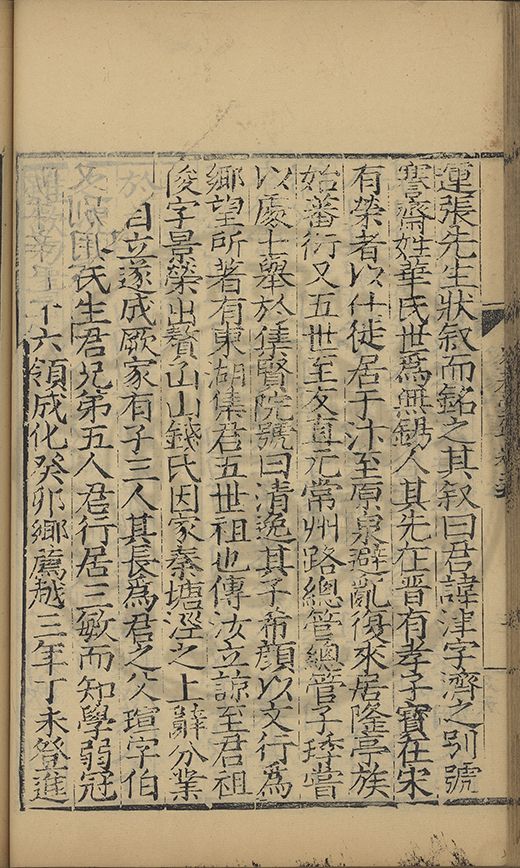 蓮張先生狀叙而銘之其叙曰君諱津字濟之別號
謇齋姓華氏世爲無錫人其先在晋有孝子寳在宋
有榮者以仕徙居于汴至原泉避亂復來居隆亭族
始蕃衍又五世至友直元常州路總管總管子璓嘗
以處士舉於集賢院號曰清逸其子希顔以文行爲
鄉望所著有東湖集君五世祖也傳汝立諒至君祖
俊字景榮出贅于山錢氏因家秦塘涇之上辭分業
於 自立遂成厥家有子三人其長爲君之父瑄字伯
氏生君兄弟五人君行居三敏而知學弱冠
十六領成化癸卯鄉薦越三年丁未登進